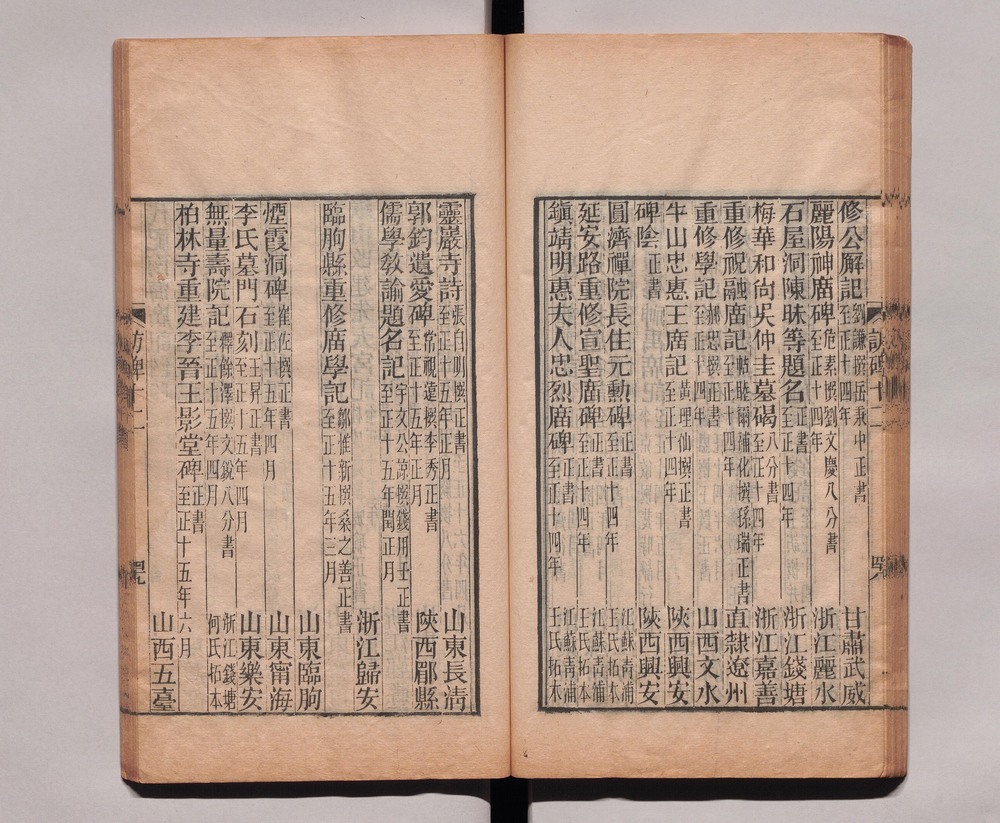 修公廨記劉謙撰岳秉中正書至正十四年 甘肅武威
麗陽神廟碑危素撰劉文慶八分書至正十四年 浙江麗水
石屋洞陳昧等題名正書至正十四年 浙江錢塘
梅華和尚吳仲圭墓碣八分書至正十四年 浙江嘉善
重修祝融廟記帖睦爾浦化撰孫瑞正書至正十四年 直隸遼州
重修學記郝忠撰正書至正十四年 山西文水
牛山忠惠王廟記黃理仙撰正書至正十四年 陝西興安
碑陰正書 陝西興安
圓濟禪院長住元勳碑正書至正十四年 江蘇青浦王氏拓本
延安路重修宣聖廟碑正書至正十四年 江蘇青浦王氏拓本
鎭靖明惠夫人忠烈廟碑正書至正十四年 江蘇青浦王氏拓本
訪碑十二
靈巖寺詩張自明撰正書至正十五年正月 山東長清
郭鈞遺愛碑常視蓮撰李秀正書至正十五年正月 陝西郿縣
儒學教諭題名記宇文公諒撰錢用壬正書至正十五年閏正月 浙江歸安
臨朐縣重修廟學記鄒惟新撰桑之善正書至正十五年三月 山東臨朐
煙霞洞碑崔佐撰正書至正十五年四月 山東甯海
李氏墓門石刻王昇正書至正十五年四月 山東樂安
無量壽院記釋餘澤撰文銳八分書至正十五年四月 浙江錢塘何氏拓本
柏林寺重建李晉王影堂碑正書至正十五年六月 山西五臺
訪碑十二